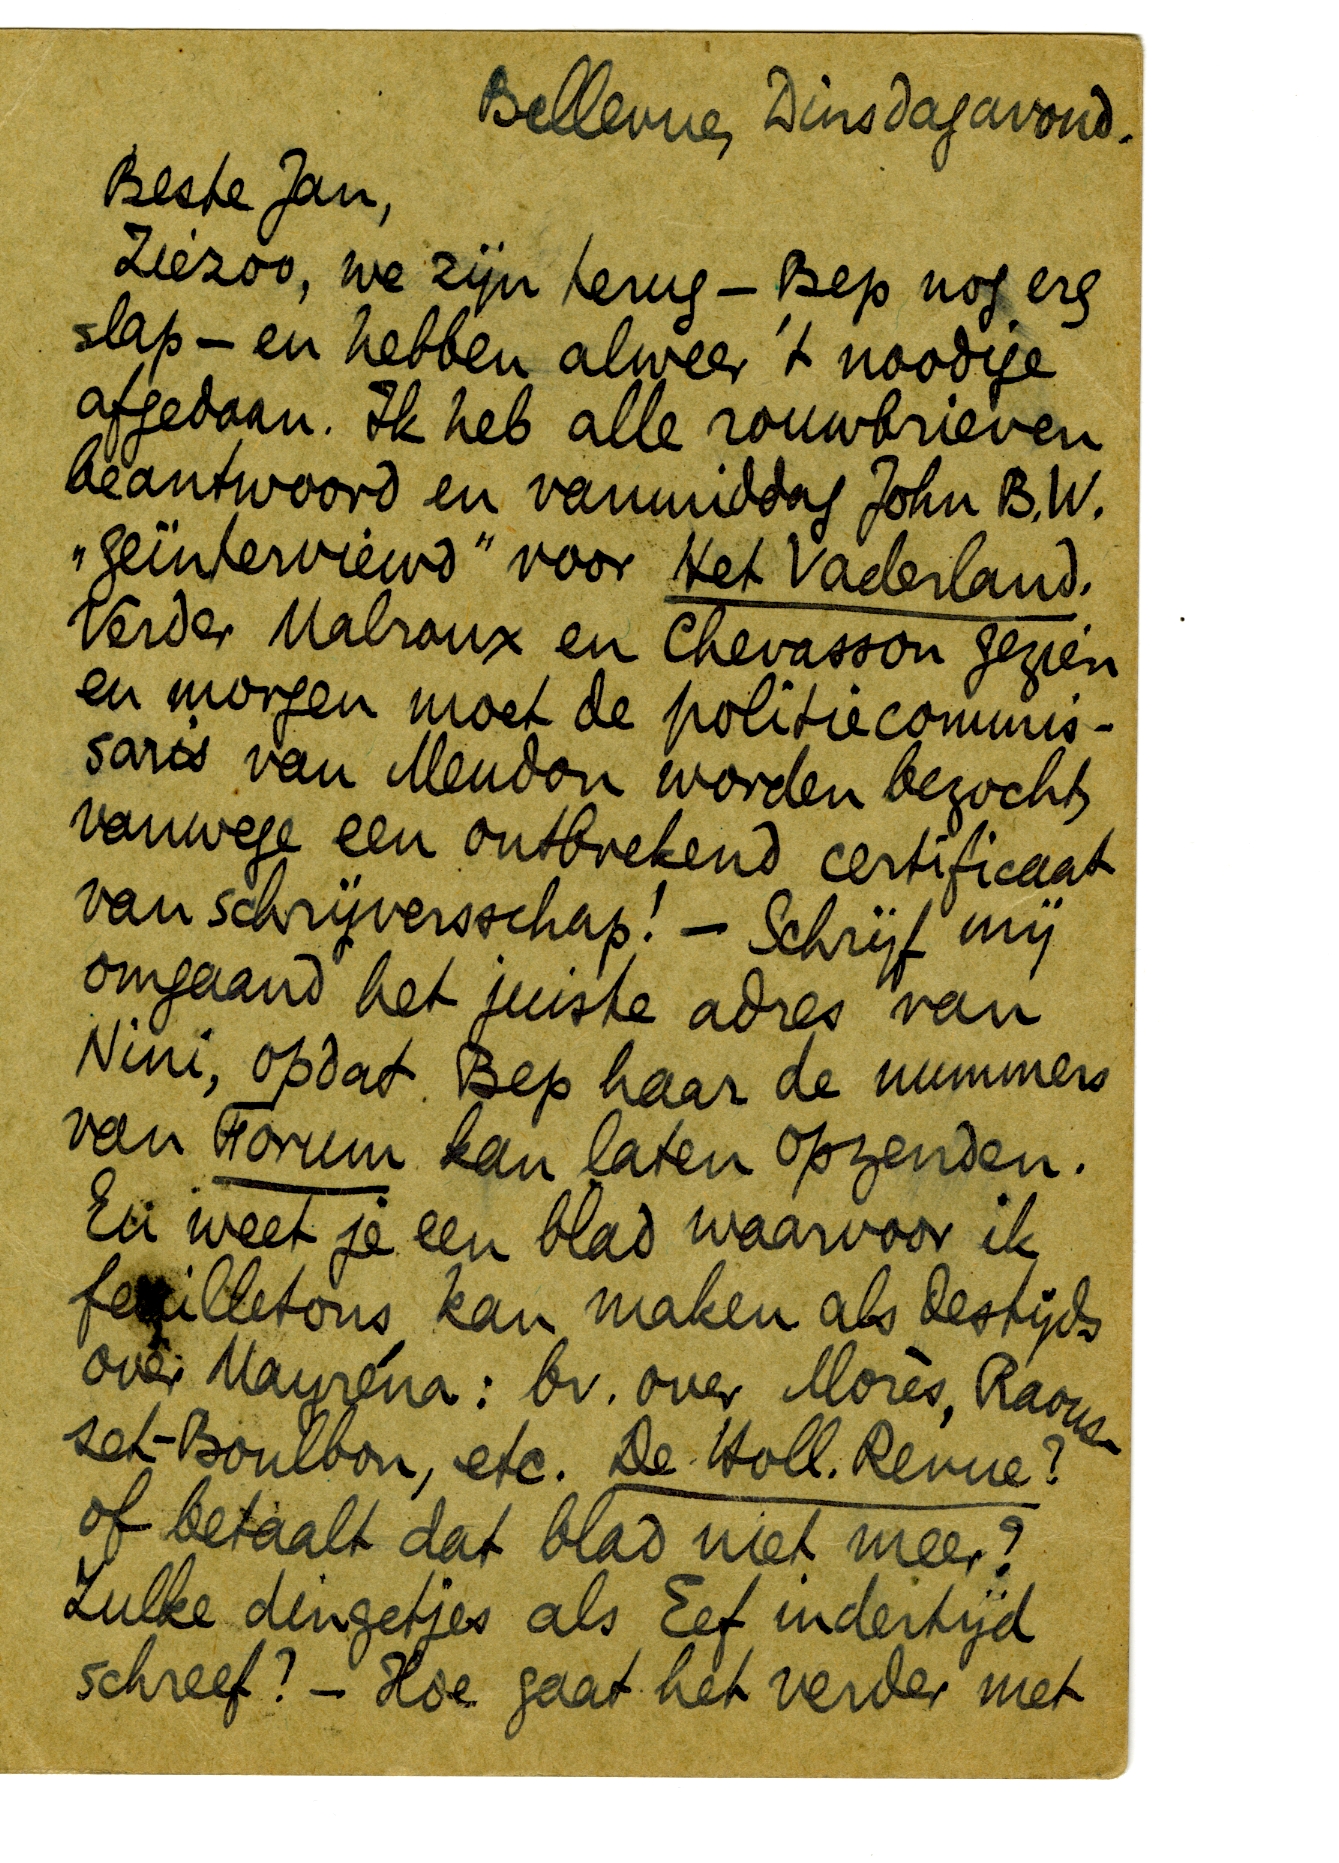 Bellevue, Dinsdagavond.
Beste Jan,
Ziezoo, we zijn terug — Bep nog erg
slap — en hebben alweer 't noodige
afgedaan. Ik heb alle rouwbrieven
beantwoord en vanmiddag John B.W.
„geïnterviewd” voor Het Vaderland.
Verder Malraux en Chevasson gezien
en morgen moet de politiecommis-
saris van Meudon worden bezocht,
vanwege een ontbrekend certificaat
van schrijversschap! — Schrijf mij
omgaand het juiste adres van
Nini, opdat Bep haar de nummers
van Forum kan laten opzenden.
En weet je een blad waarvoor ik
feuilletons kan maken als destijds
over Mayréna: bv. over Morès, Raous-
set-Boulbon, etc. De Holl. Revue?
of betaalt dat blad niet meer?
Zulke dingetjes als Eef indertijd
schreef? — Hoe gaat het verder met